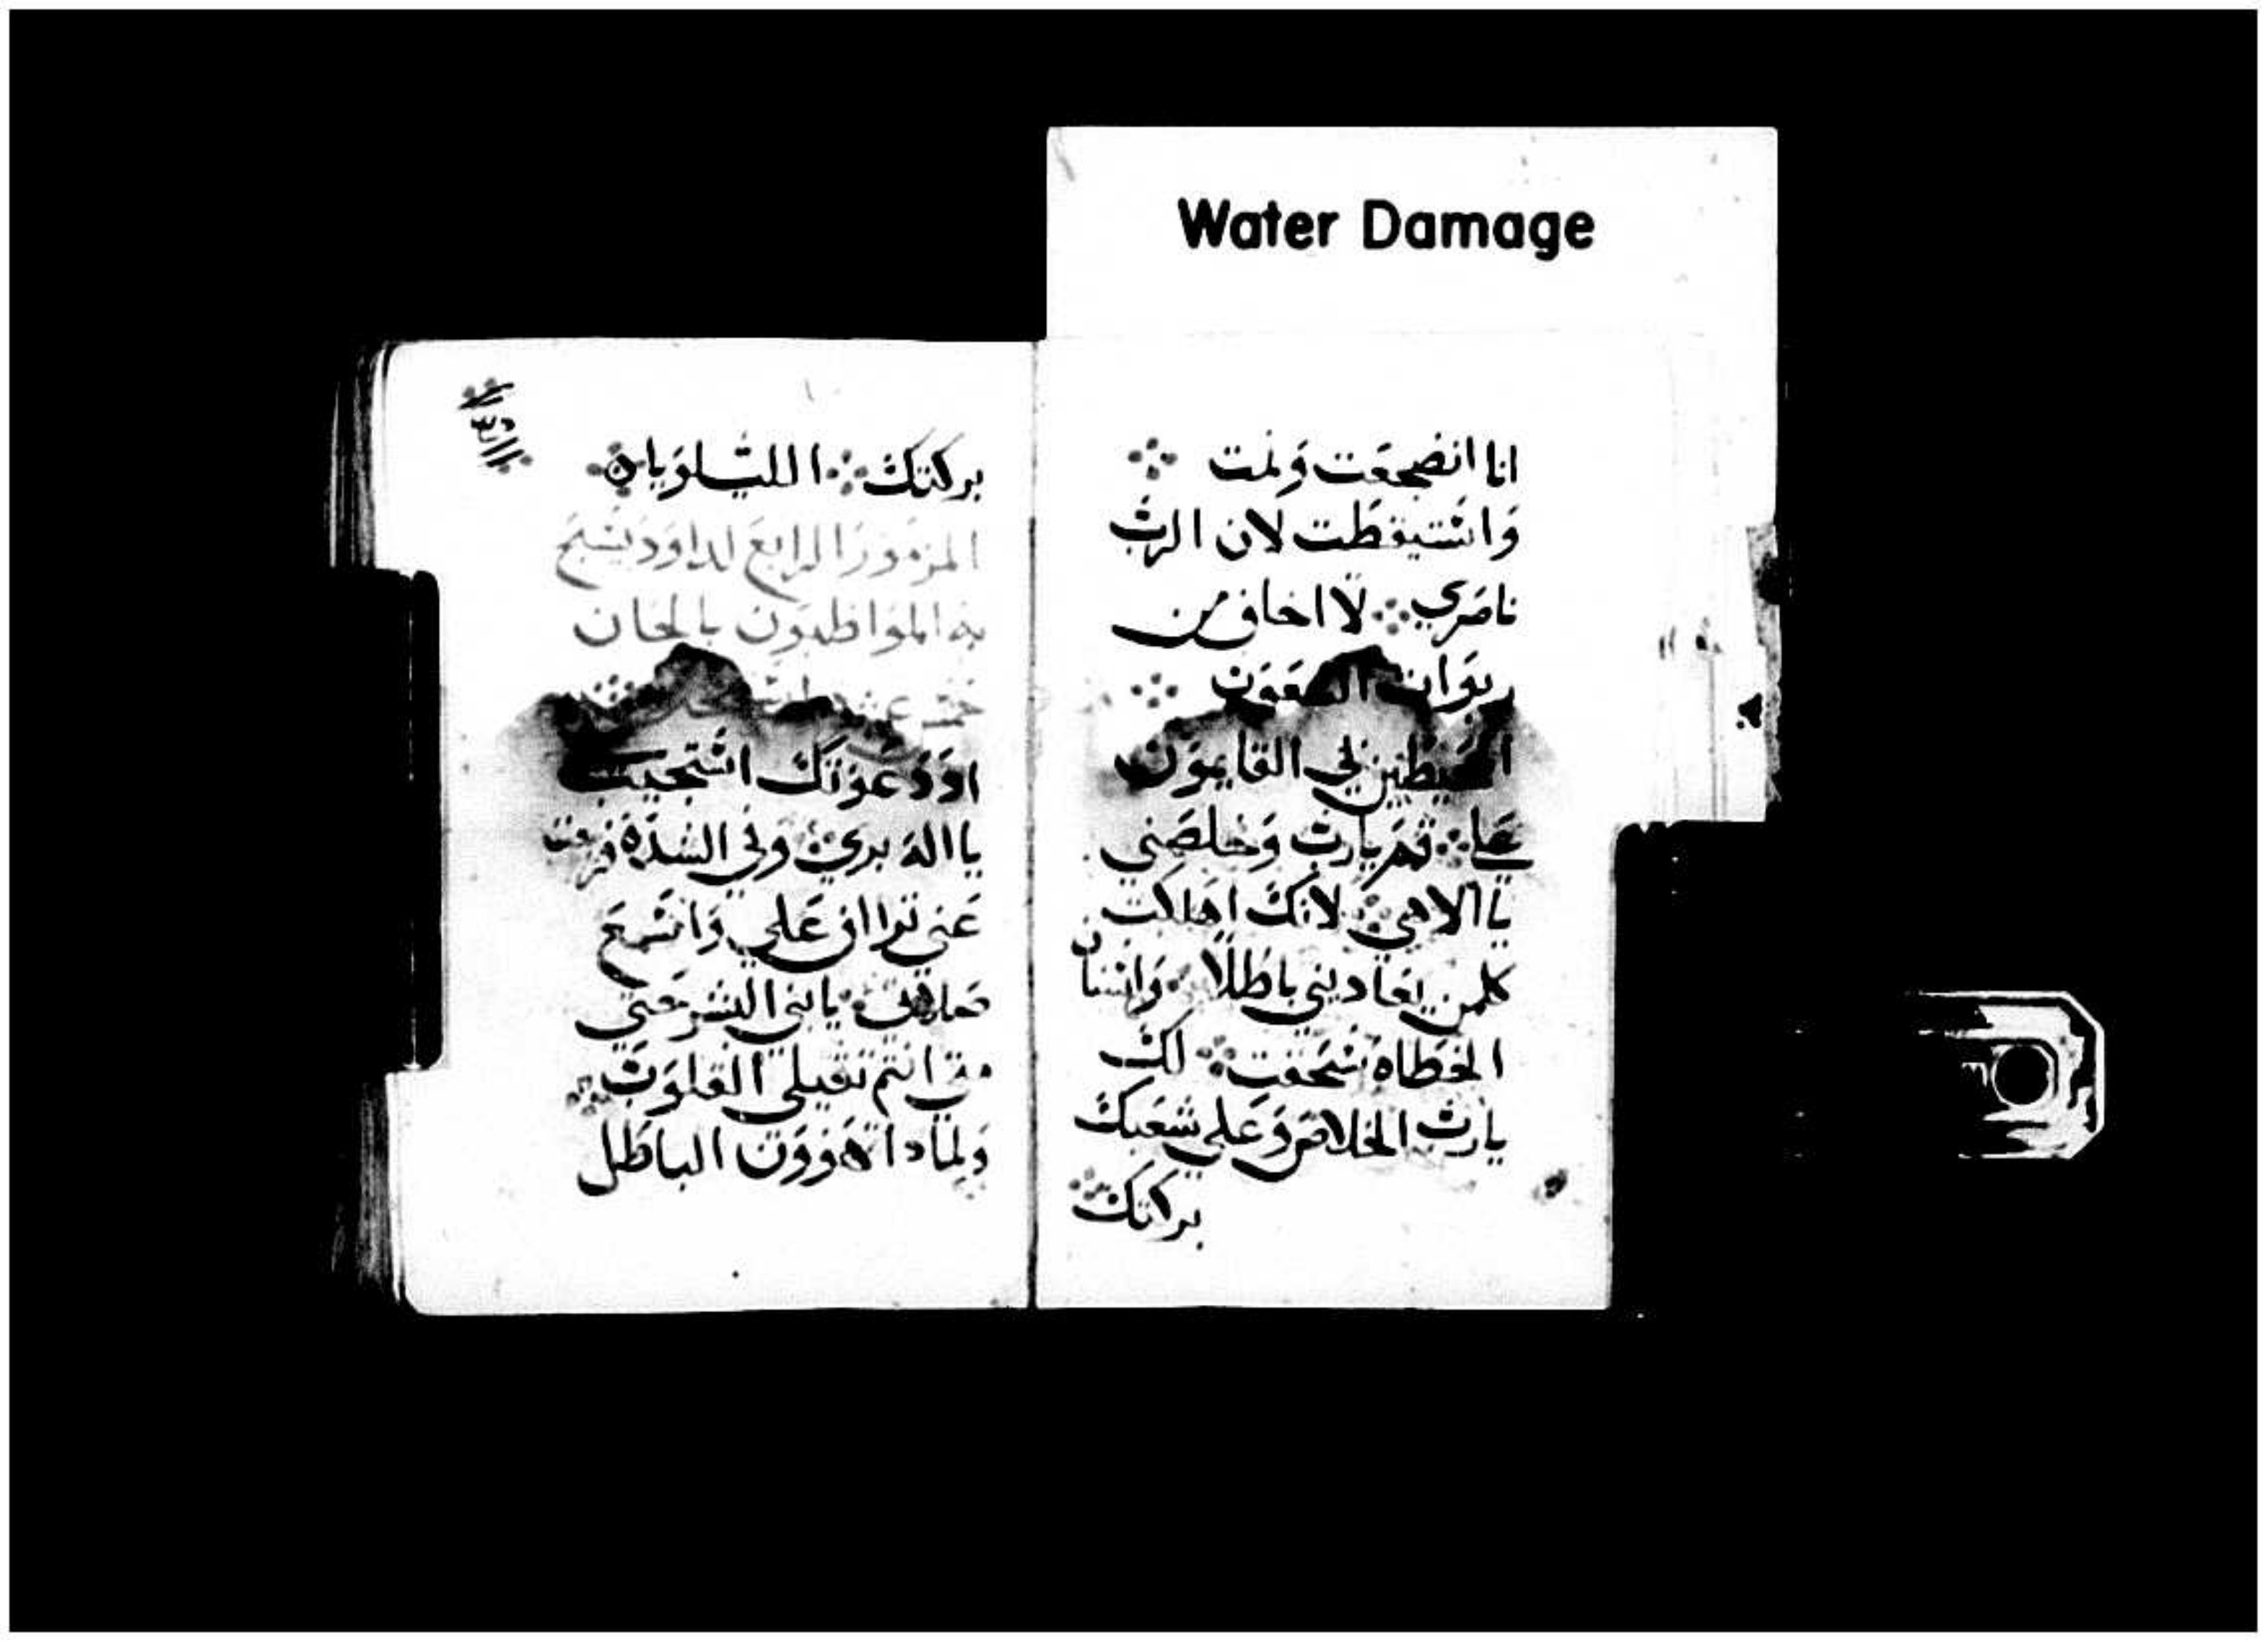 Water Damage
انا انضجعت ونمت
واستيقظت لان الرب
ناصري لا اخاف من
ربوات
المحيطين بي القايمون
علي قم يارب وخلصني
يا الاهي لانك اهلكت
كلمن يعاديني باطلا واسنان
الخطاه سحقت لك
يارب الخلاص وعلى شعبك
بركتك
بركتك الليلوياه
المزمور الرابع لداود يسبح
به المواظبون بالحان
اد دعوتك استجيب
يا اله بري وفي الشده فرجت
عني ترااف علي واسمع
صلاتي يابني البشر حتي
متي انتم تقيلي القلوب
ولمادا تهوون الباطل